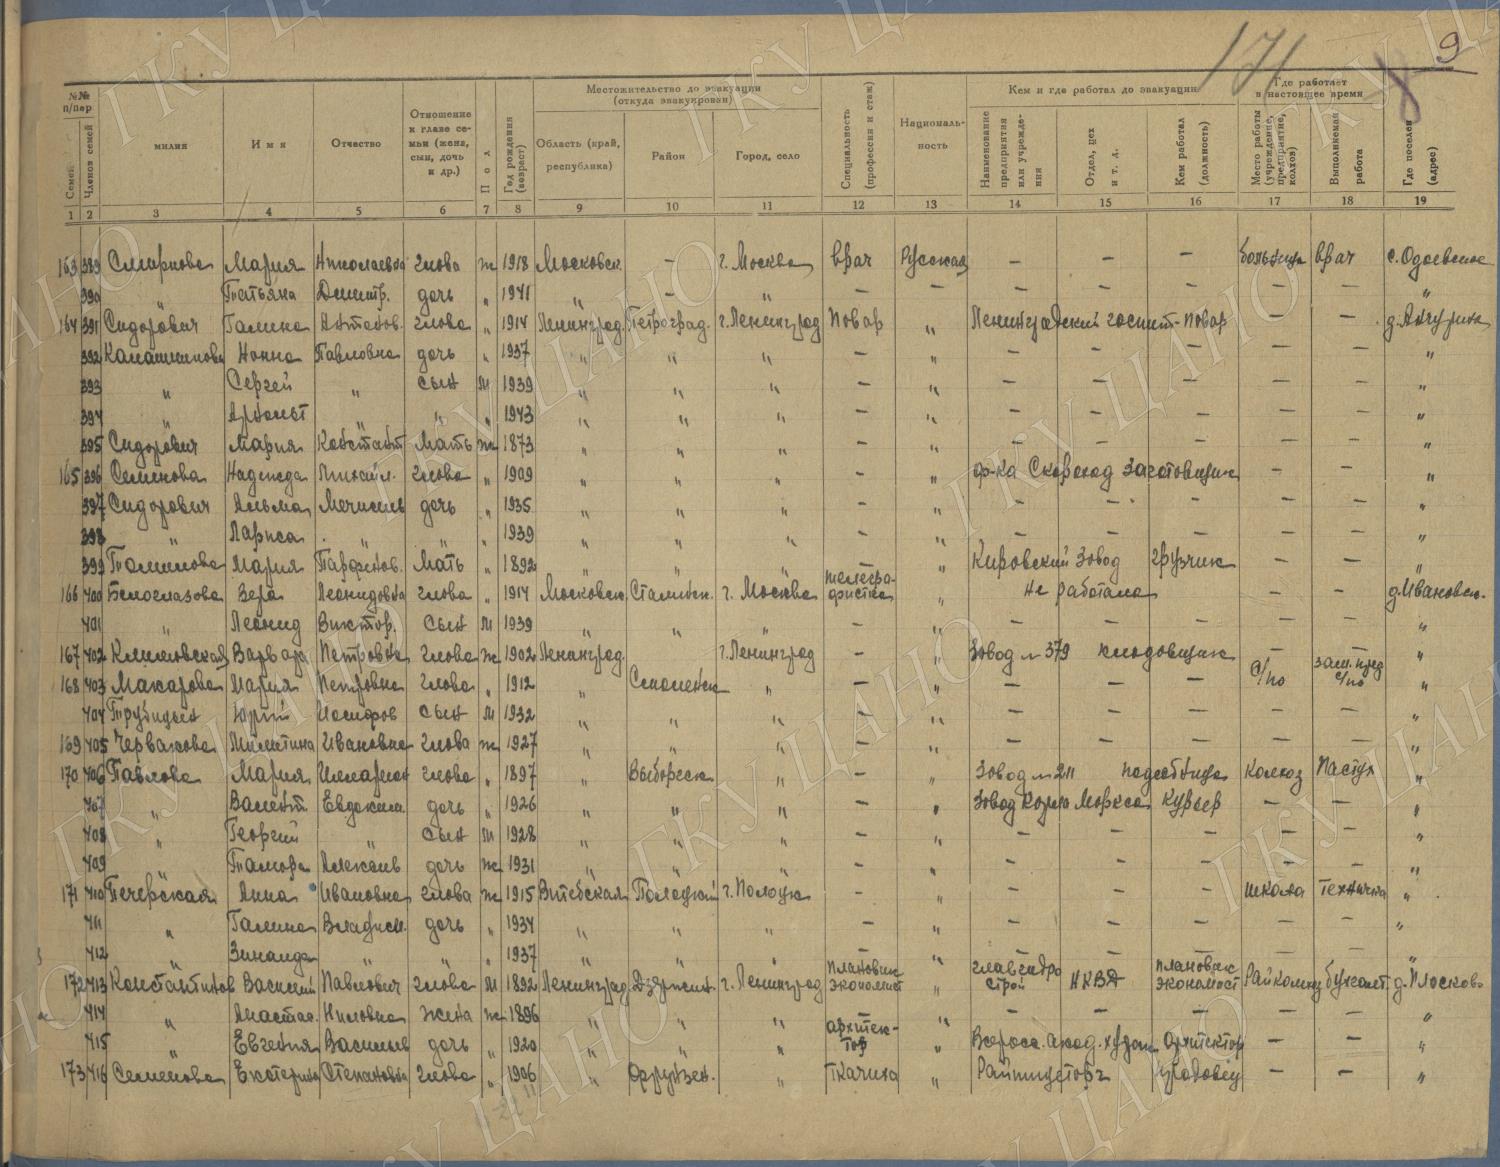 171 9
№№ п/пор
Семей
Членов семей
милия
Имя
Отчество
Отношение к главе семьи (жена, сын, дочь и др.)
Пол
Год рождения (возраст)
Местожительство до эвакуации (откуда эвакуирован)
Область (край, республика)
Район
Город, село
Специальность (профессия и стаж)
Националь-ность
Кем и где работал до эвакуации
Наименование предприятия или учрежде-ния
Отдел, цех и т. д.
Кем работал (должность)
Где работает в настоящее время
Место работы (учреждение, предприятие, колхоз)
Выполняемая работа
Где поселен (адрес)
1 2 3 4 5 6 7 8 9 10 11 12 13 14 15 16 17 18 19
163 389 Смирнова Мария Николаевна глова ж 1918 Московск. – г. Москва врач Русская – – – больница врач с. Одоевское
390 " Татьяна Дмитр. дочь " 1941 " – " – " – – – – – "
164 391 Сидорович Галина Антонов. глова " 1914 Ленинград. Петроград. г. Ленинград Повар " Ленинградский госпит- повар – –
392 Калашникова Нонна Павловна дочь " 1937 " " " – " – – – – – "
393 " Сергей " сын м 1939 " " " – " – – – – – "
394 " Арнольт " " " 1943 " " " – " – – – – – "
395 Сидорович Мария Констант мать ж 1873 " " " – " – – – – – "
165 396 Семенова Надежда Михайл. глова " 1909 " " " – " ф-ка Скороход Заготовщик – – "
397 Сидорович Альма Мечислв дочь " 1935 " " " – " – – – – – "
398 " Лариса " " " 1939 " " " – " – – – – – "
399 Томилова Мария Парфенов. мать " 1892 " " " – " Кировский Завод грузчик – – "
166 400 Белоглазова Вера Леонидовна глова " 1914 Московск. Сталинск. г. Москва телегра-фистка " не работала – – д. Ивановск.
401 " Леонид Виктор. сын м 1939 " " " – " – – – – – "
167 402 Климовская Варвара Петровна глова ж 1902 Ленинград. г. Ленинград – " Завод № 379 кладовщик – – "
168 403 Макарова Мария Петровна глова " 1912 " Смоленск " – " – – – с/по зам. пред с/по "
404 Юрий Иосифов сын м 1932 " " " – " – – – – – "
169 405 Червакова Ивановна глова ж 1927 " " " – " – – – – – "
170 406 Павлова Мария Иллариов глова " 1897 " Выборгск " – " Завод № 211 подсобница Колхоз Пастух "
407 " Валент Евдоким. дочь " 1926 " " " – " Завод Карла Маркса Курьер – – "
408 " Георгий " сын м 1928 " " " – " – – – – – "
409 Тамара Алексеев дочь ж 1931 " " " – " – – – – – "
171 410 Печерская Анна Ивановна глова ж 1915 Витебская Полоцкий г. Полоцк – " – – – школа техничка "
411 " Галина Владисл. дочь " 1934 " " " – " – – – – – "
412 " Зинаида " " " 1937 " " " – " – – – – – "
172 413 Константинов Василий Павлович глова м 1892 Ленинград Дзержинск г. Ленинград плановик экономист " главгидро строй НКВД плановик экономист Райкомхоз бухгалт д. Плосково
414 " Анастас. Ниловна жена ж 1896 " " " – " – – – – – "
415 " Евгения Васильев дочь " 1920 " " " архитек-тор " Всеросс. акад. худож архитектор – – "
173 416 Семенова Екатерина Степановна глова " 1906 " Фрунзен. " Ткачиха " Райпищеторг – – "